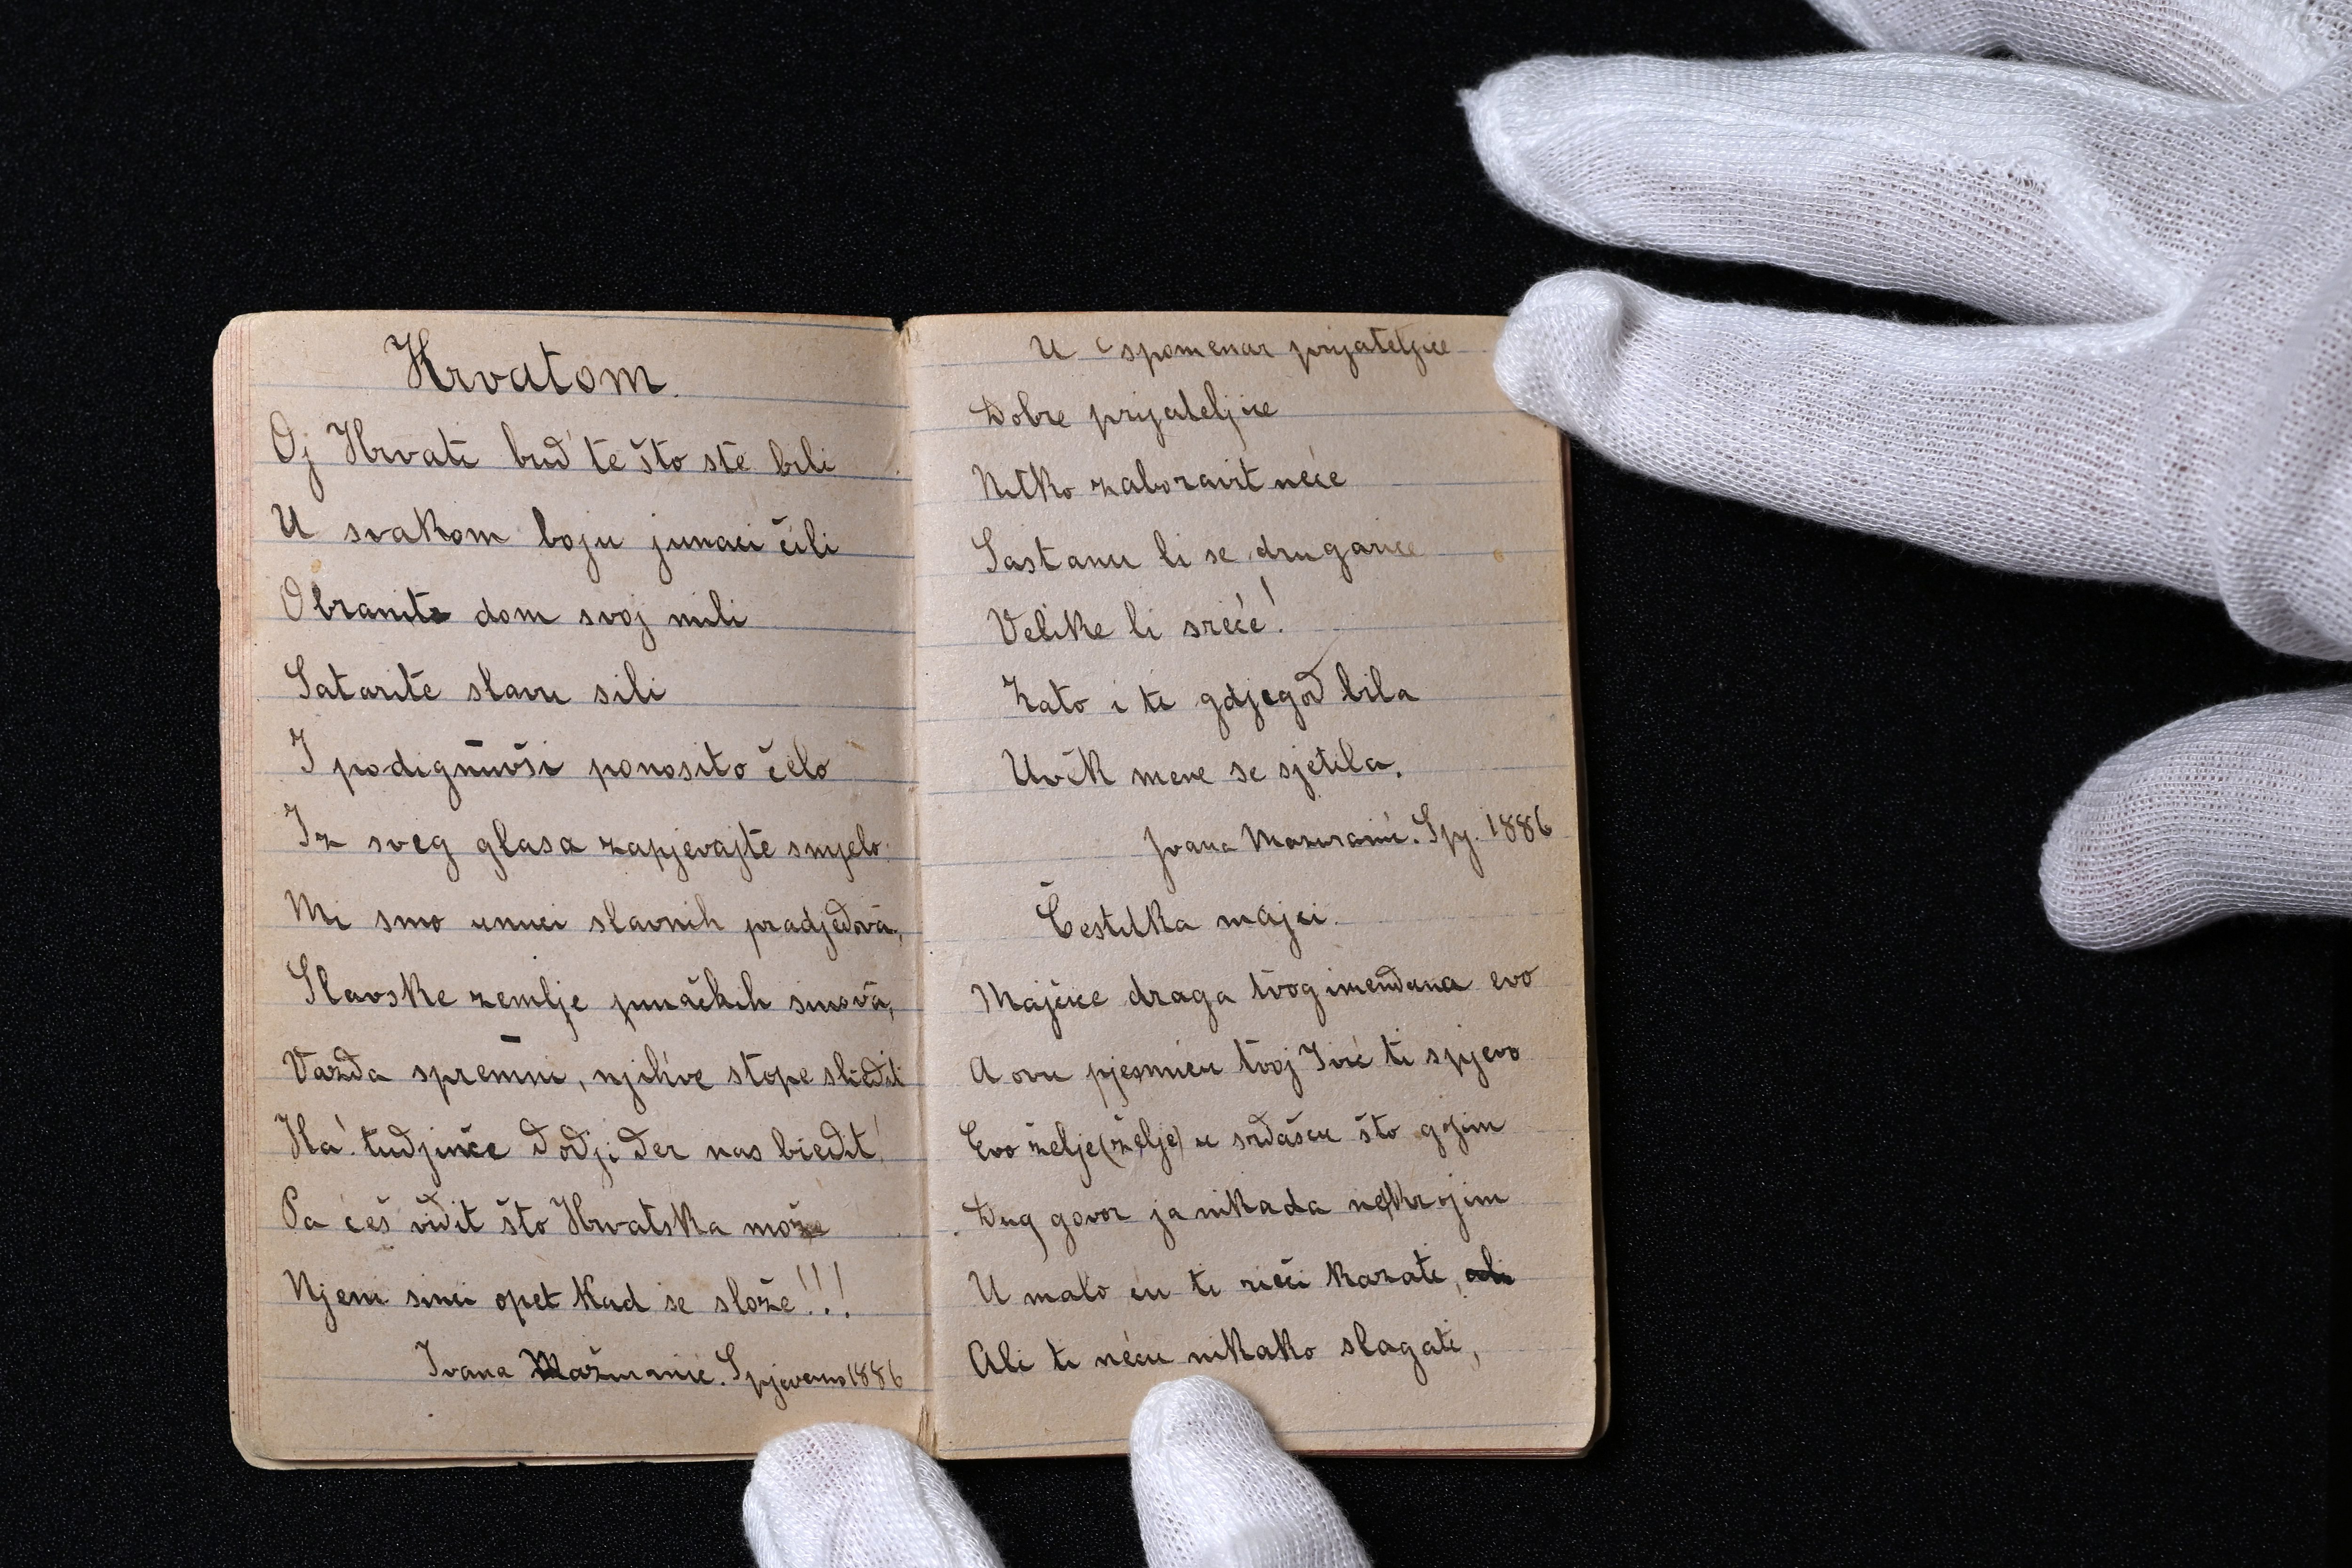 Hrvatom.
Oj Hrvati bud'te što ste bili
U svakom boju junaci čili
Obranite dom svoj mili
Satarite slavu sili
I podignūvši ponosito čelo
Iz sveg glasa zapjevajte smjelo:
Mi smo unuci slavnih pradjedovā,
Slavske zemlje junačkih sinovā,
Vazda spremni, njihve stope sliedit
Ha! tudjinče dodji der nas biedit!
Pa ćeš vidit što Hrvatska može
Njeni sinci opet kad se slože!!!
Ivana Mažuranić. Spjevano 1886
U spomenar prijateljice
Dobre prijateljice
Nitko zaboravit neće
Sastanu li se drugarice
Velike li sreće!
Zato i ti gdjegod bila
Uvěk mene se sjetila.
Ivana Mazuranić. Spj. 1886
Čestitka majci.
Majčice draga tvog imendana evo
A ovu pjesmicu tvoj Ivić ti spjevo
Evo želje (želje) u srdašcu što gojim
Dug govor ja nikada nekrojim
U malo ću ti rieči kazati, ali
Ali ti neću nikako slagati,